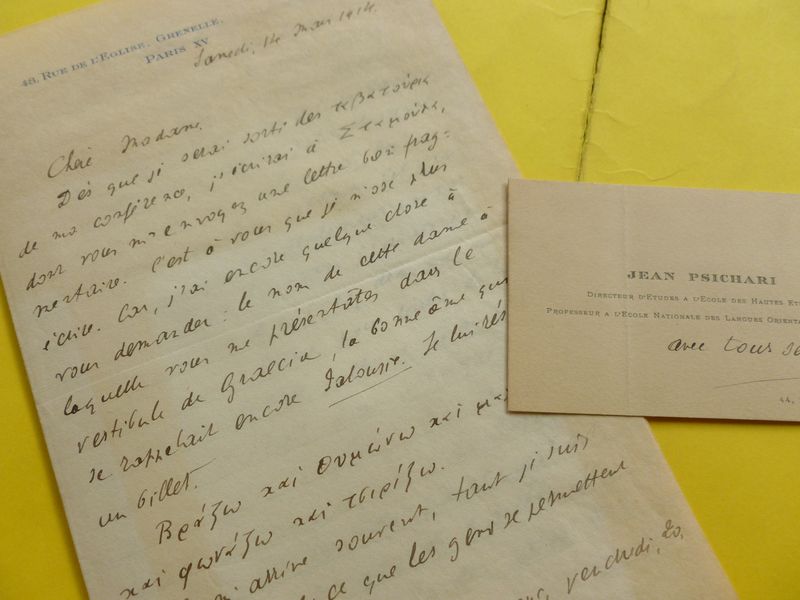 48, RUE DE L'EGLISE, GRENELLE.
PARIS XV
Samedi, 14 Mars 1914.
Chère Madame,
Dès que je serai sorti des ταβατούρια
de ma conférence, j'écrirai à Σταμούλη,
dont vous m'envoyez une lettre bien frag-
mentaire. C'est à vous que je n'ose plus
écrire. Car, j'ai encore quelque chose à
vous demander: le nom de cette dame à
laquelle vous me présentâtes dans le
vestibule de Graecia, la bonne âme qui
se rappelait encore Jalousie. Je lui
un billet.
Βράζω καὶ θυμώνω καὶ
καὶ φωνάζω καὶ τσιρίζω.
arrive souvent, tant je suis
ce que les gens se permettent
vendredi, 20,
JEAN PSICHARI
DIRECTEUR D'ETUDES A L'ECOLE DES HAUTES
PROFESSEUR A L'ECOLE NATIONALE DES LANGUES
avec tous
44,